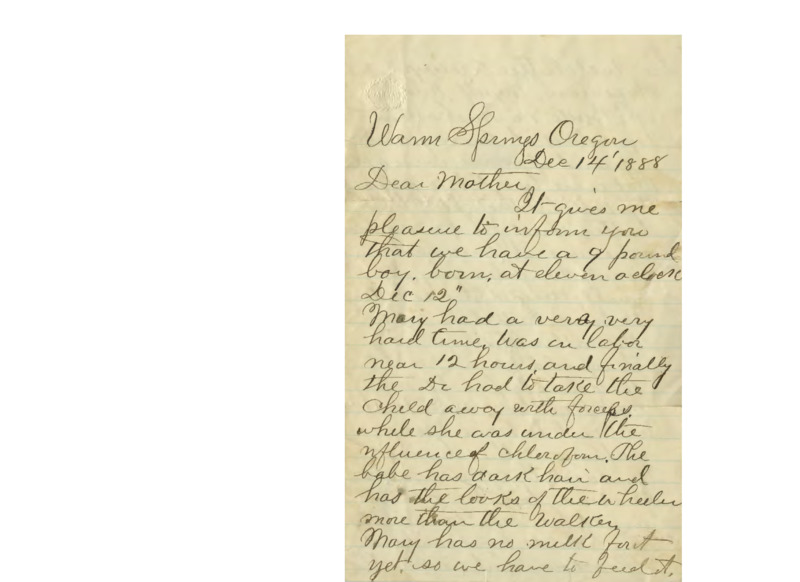 Warm Springs Oregon
Dec 14' 1888
Dear Mother,
It gives me
pleasure to inform you
that we have a 9 pound
boy. born, at eleven oclock
Dec 12"
Mary had a very, very
hard time, was in labor
near 12 hours, and finally
the Dr had to take the
child away with forceps.
while she was under the
influence of chloroform. The
babe has dark hair and
has the looks of the Wheeler
more than the Walker.
Mary has no milk for it
yet. so we have to feed it.